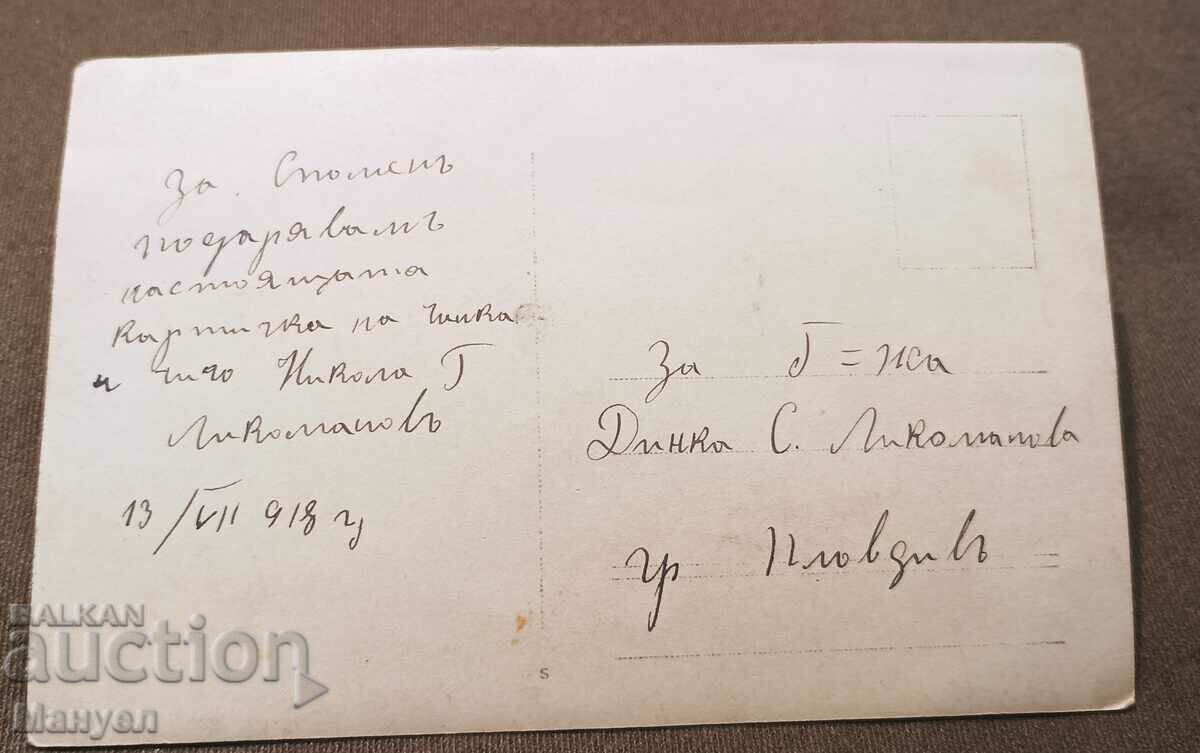 За Споменъ
подарявамъ
настоящата
картичка на
и чичо Никола Г
Ликомановъ
13/VII 918 г
За Г=жа
Динка С. Ликоманова
гр Пловдивъ
S
BALKAN
auction
Мануел